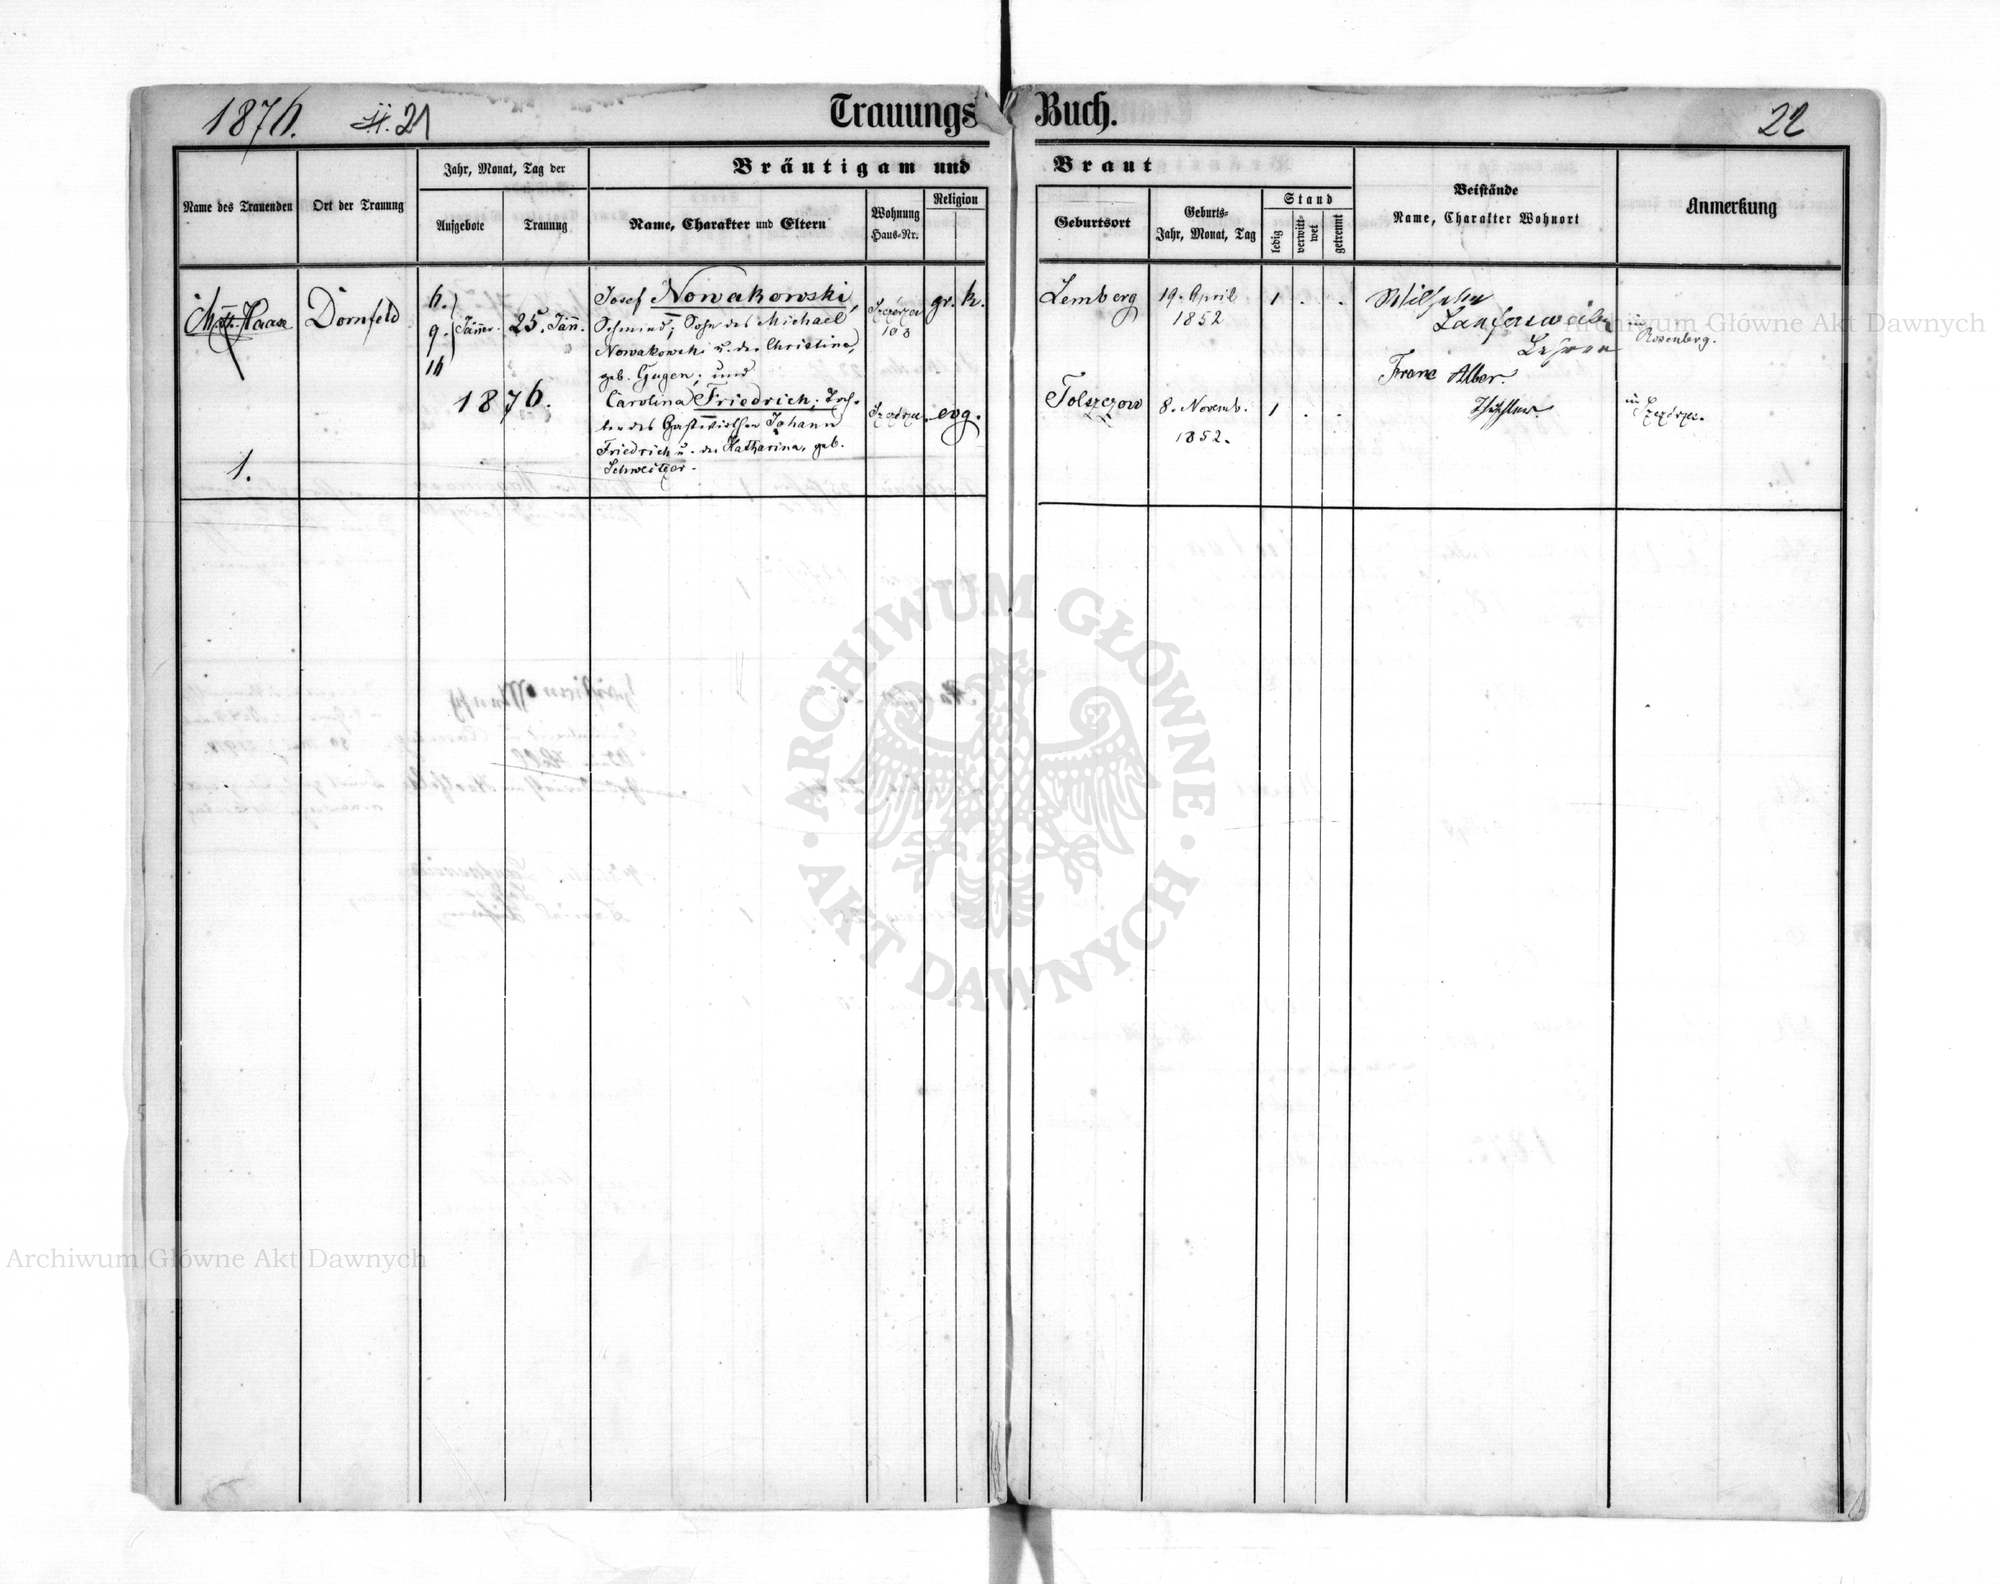 1876. 21
Trauungs Buch.
22
Name des Trauenden
Ort der Trauung
Jahr, Monat, Tag der
Aufgebote
Trauung
Bräutigam und Braut
Name, Charakter und Eltern
Wohnung
Haus-Nr.
Religion
Geburtsort
Geburts-
Jahr, Monat, Tag
Stand
ledig
verwitt-
wet
getrennt
Beistände
Name, Charakter Wohnort
Anmerkung
Haase
Dornfeld
6.
9. Jänner.
16
1876.
25. Jänn.
1.
Josef Nowakowski,
Schmied, Sohn des Michael
Nowakowski u. der Christina,
geb. Gugen; und
Carolina Friedrich, Toch-
ter des Gastwirthen Johann
Friedrich u. der Katharina, geb.
Schweitzer.
Szczerzec
108
gr. k.
Szczerzec.
evg.
Lemberg
19. April
1852
1 . .
Tolszczow
8. Novemb.
1852.
1 . .
Wilhelm
Laufersweiler
Lehrer
in
Rosenberg.
Franz Alber.
Tischler.
in
Szczerzec.
ARCHIWUM GŁÓWNE AKT DAWNYCH
Archiwum Główne Akt Dawnych
Archiwum Główne Akt Dawnych